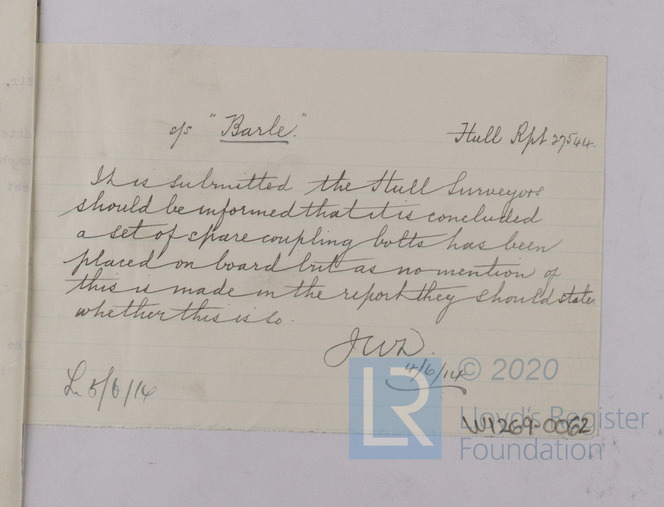 c/s "Barle." Hull Rpt 27544.
It is submitted the Hull Surveyors
should be informed that it is concluded
a set of spare coupling bolts has been
placed on board but as no mention of
this is made in the report they should state
whether this is so.
JWD.
4/6/14
L. 5/6/14
© 2020
LR
Lloyd's Register
Foundation
W1269-0062